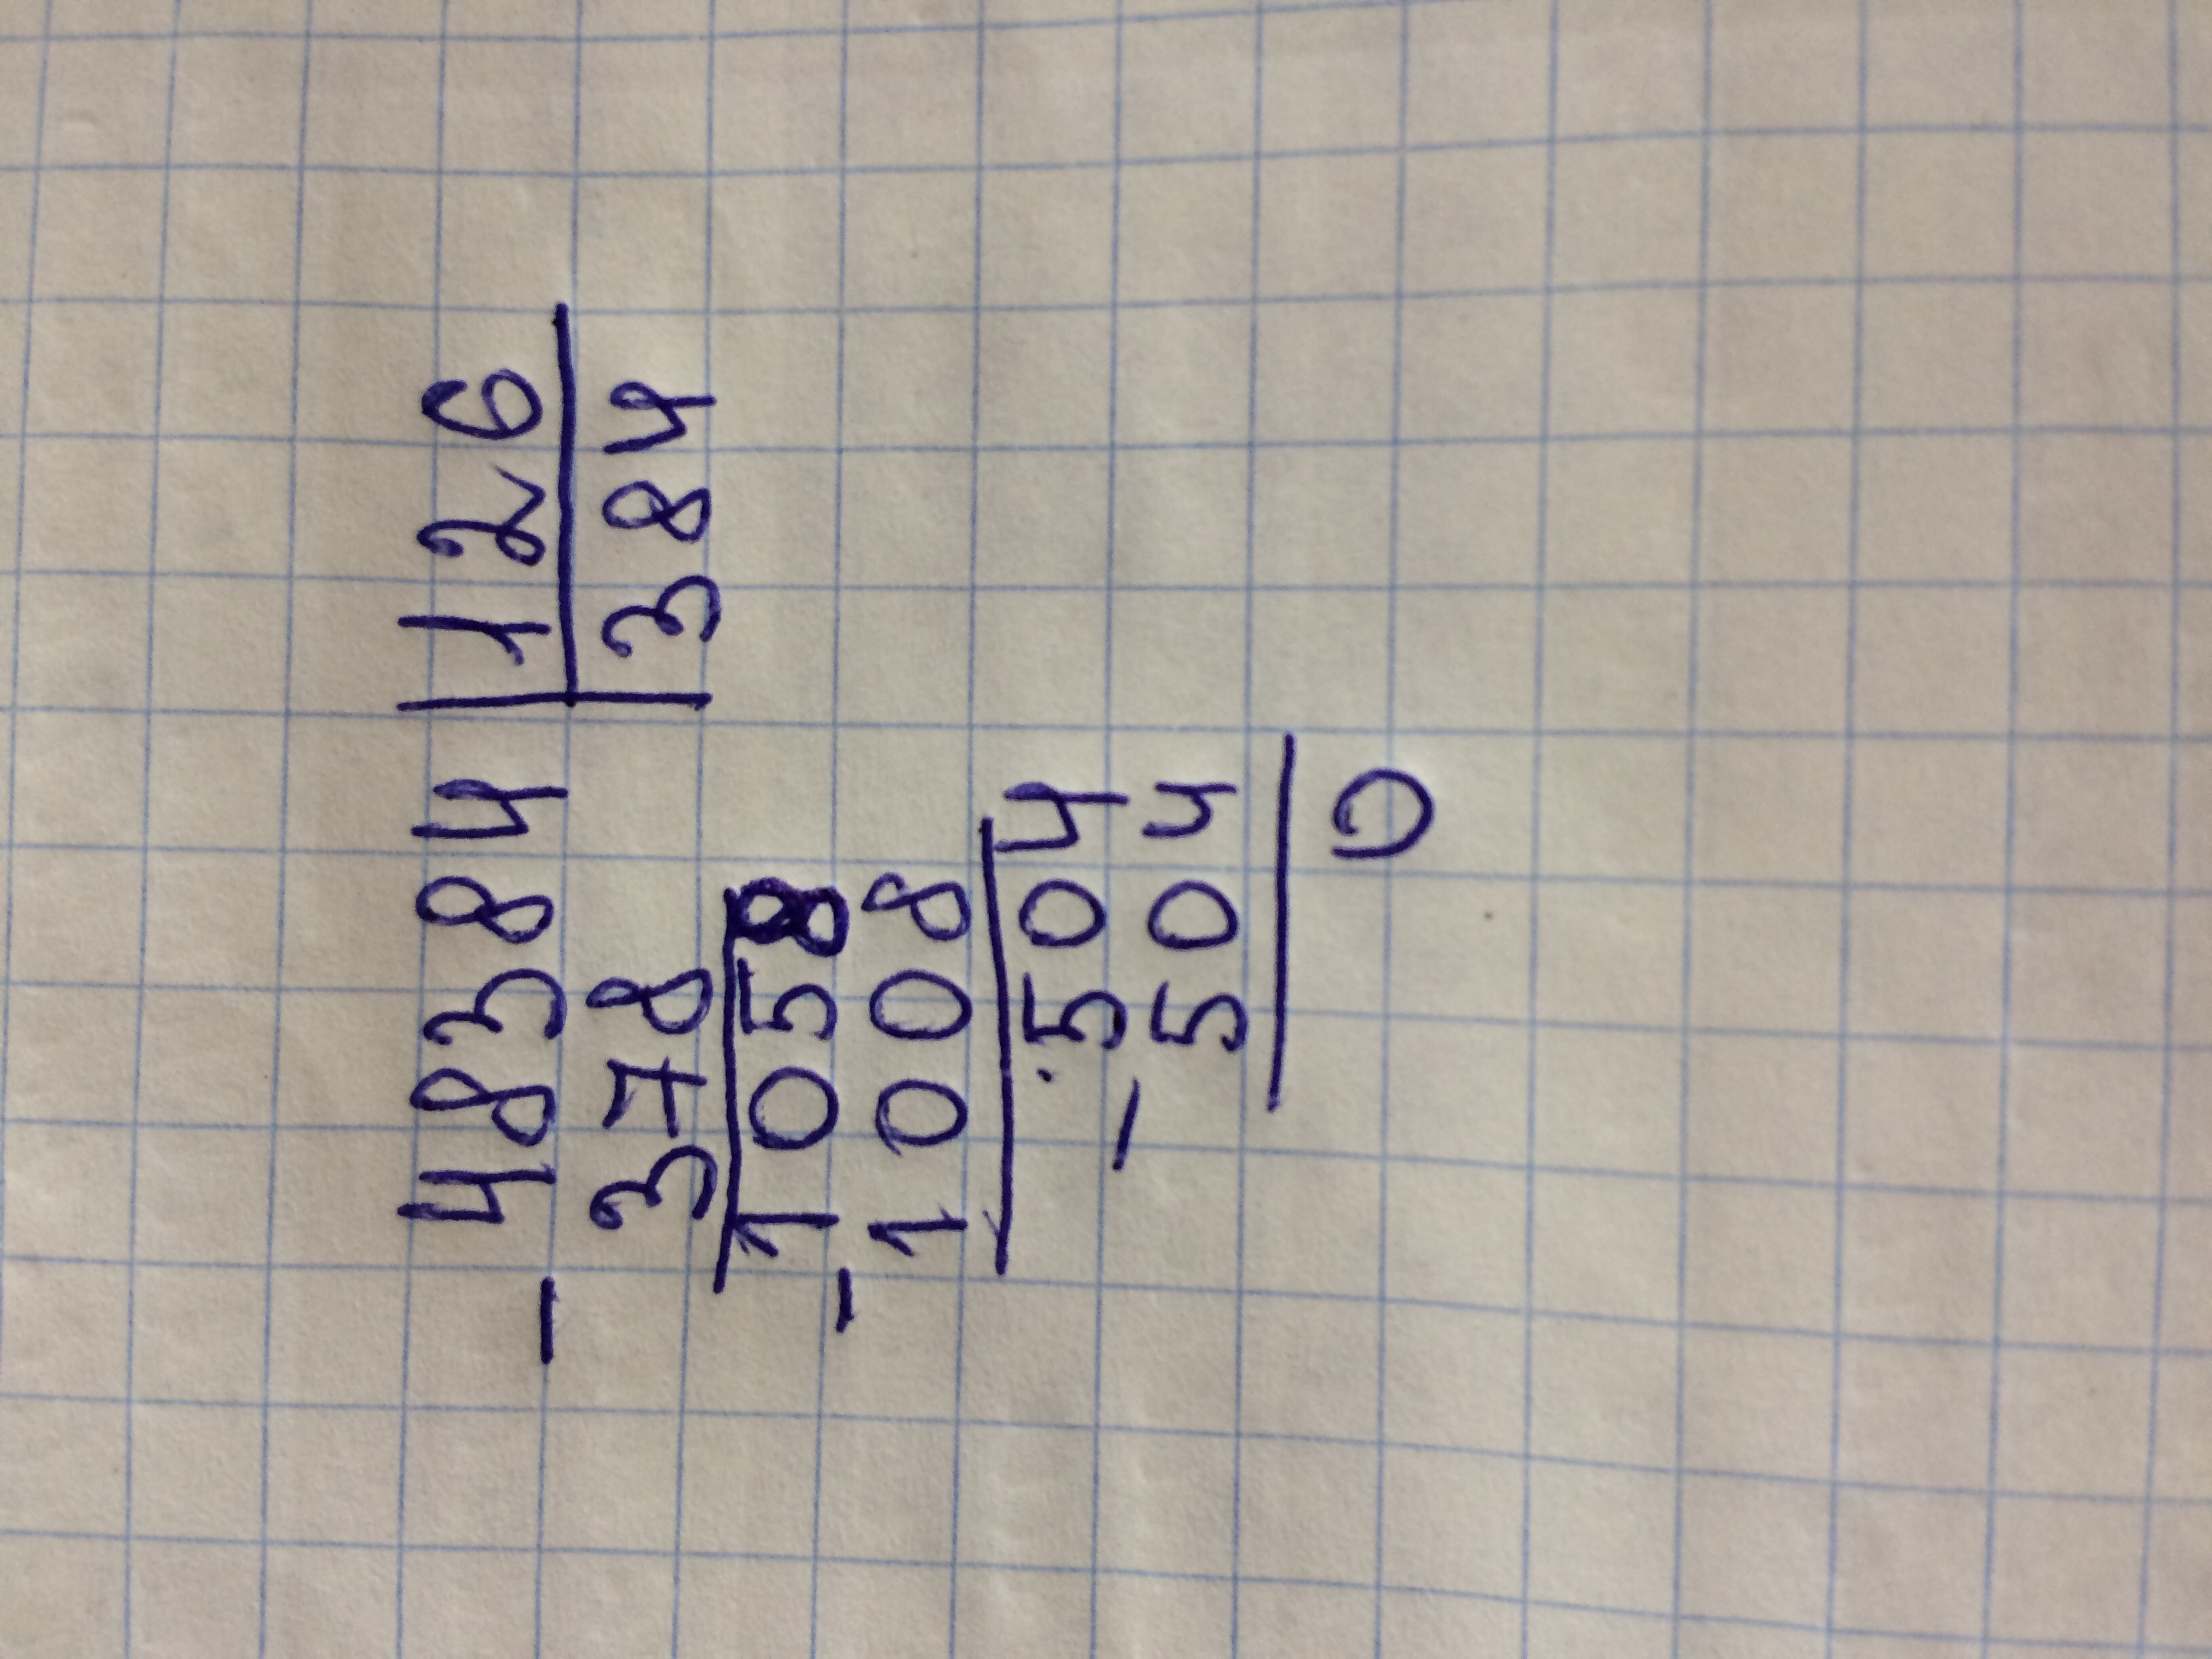 48384 | 126
378 | 384
- 1058
1008
- 504
504
0